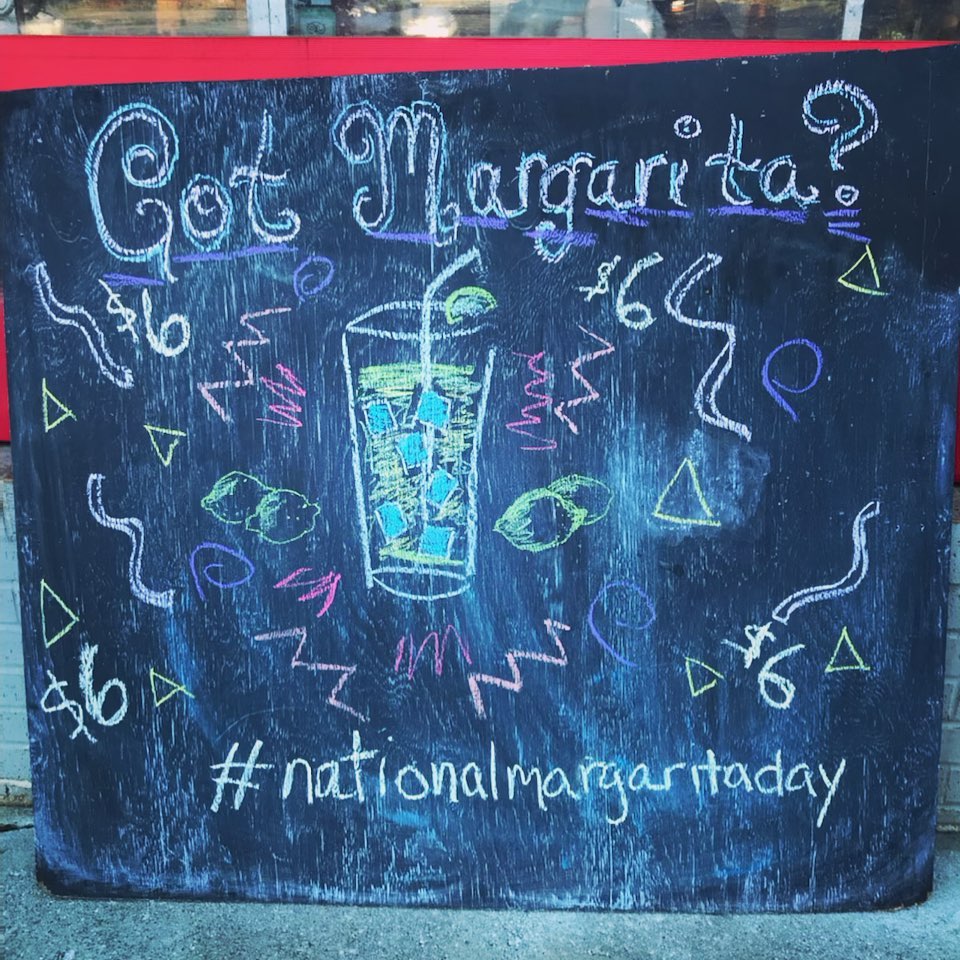 Got Margarita?
$6
$6
$6
$6
#nationalmargaritaday